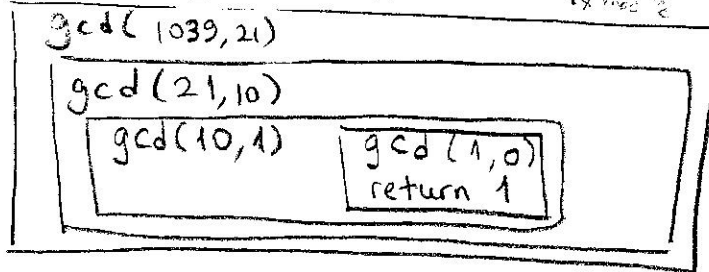 gcd(1039,21)
gcd(21,10)
gcd(10,1) gcd(1,0)
return 1